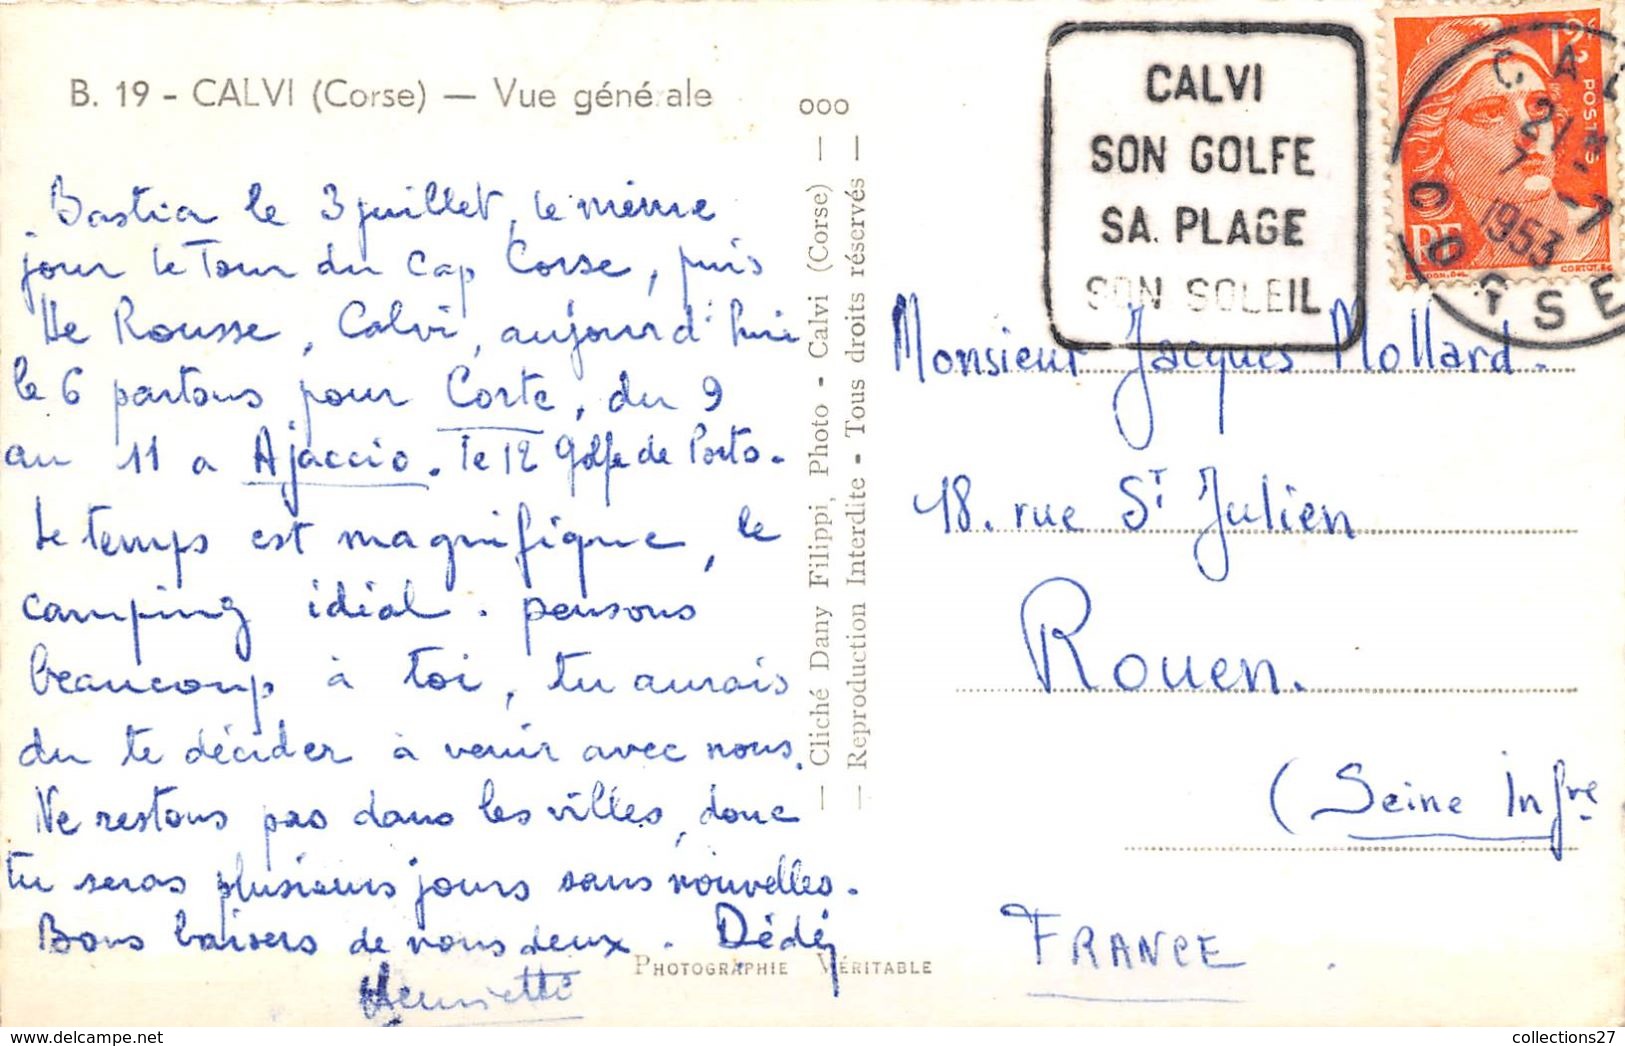 B. 19 - CALVI (Corse) — Vue générale
Bastia le 3 juillet, le même
jour le Tour du Cap Corse, puis
Ile Rousse, Calvi, aujourd'hui
le 6 partons pour Corte, du 9
au 11 a Ajaccio. le 12 Golfe de Porto.
Le temps est magnifique, le
camping idial. pensons
beaucoup à toi, tu aurais
du te décider à venir avec nous.
Ne restons pas dans les villes, donc
tu seras plusieurs jours sans nouvelles.
Bons baisers de nous deux. Dédé
Henriette
PHOTOGRAPHIE VÉRITABLE
ooo
— Cliché Dany Filippi, Photo - Calvi (Corse) —
— Reproduction Interdite - Tous droits réservés —
CALVI
SON GOLFE
SA PLAGE
SON SOLEIL
12F
POSTES
RF
CORTOT.SC
CAL
21
7 -7
1953
CORSE
Monsieur Jacques Mollard.
18. rue St Julien
Rouen.
(Seine Infre
FRANCE.
collections27